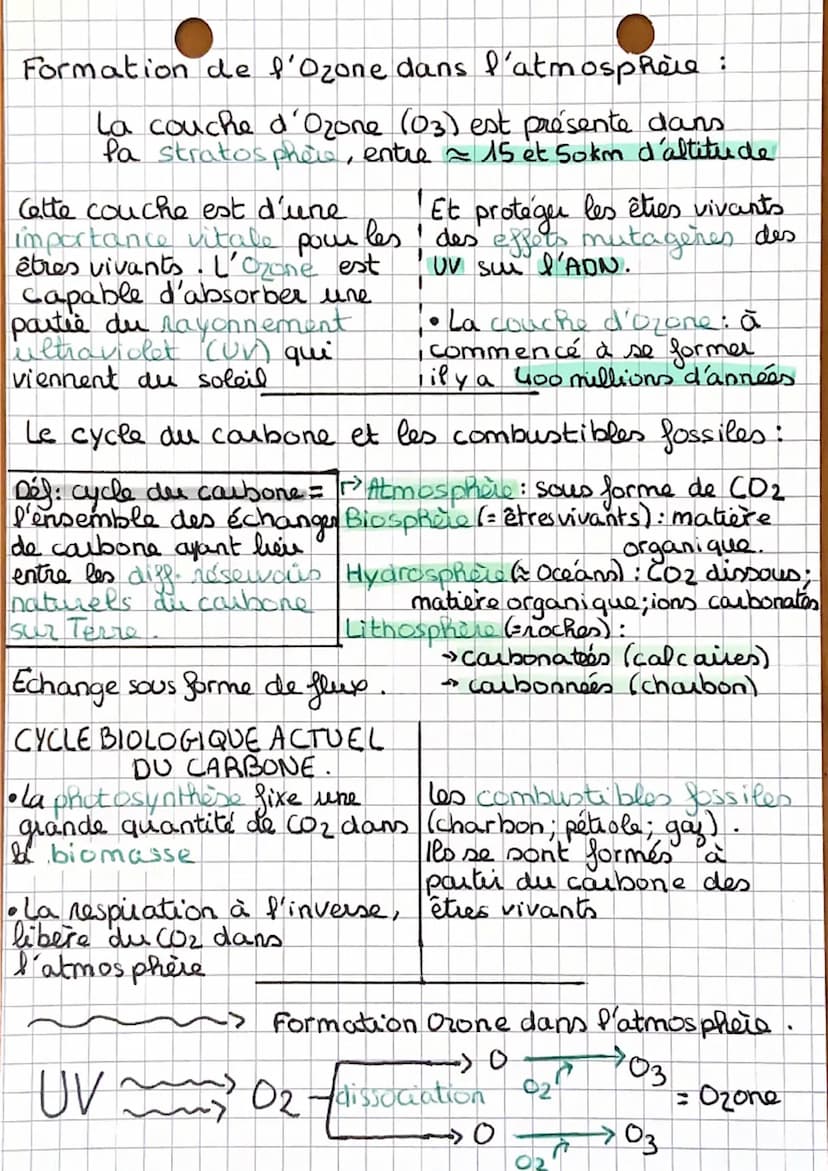 Formation de l'Ozone dans l'atmosphère :
La couche d'Ozone (O3) est présente dans
la stratosphère, entre ≈ 15 et 50km d'altitude
Cette couche est d'une
importance vitale pour les
êtres vivants. L'Ozone est
capable d'absorber une
partie du rayonnement
ultraviolet (UV) qui
viennent du soleil
Et protéger les êtres vivants
des effets mutagènes des
UV sur l'ADN.
• La couche d'Ozone : à
commencé à se former
il y a 400 millions d'années
Le cycle du carbone et les combustibles fossiles :
Déf: cycle du carbone =
l'ensemble des échanges
de carbone ayant lieu
entre les diff. réservoirs
naturels du carbone
sur Terre.
Échange sous forme de flux.
↱ Atmosphère : sous forme de CO2
Biosphère (= êtres vivants) : matière
organique.
Hydrosphère (≈ Océans) : CO2 dissous ;
matière organique ; ions carbonates
Lithosphère (=roches) :
→ carbonatés (calcaires)
→ carbonnées (charbon)
CYCLE BIOLOGIQUE ACTUEL
DU CARBONE.
• La photosynthèse fixe une
grande quantité de CO2 dans
la biomasse
• La respiration à l'inverse,
libère du CO2 dans
l'atmosphère
Les combustibles fossiles
(charbon ; pétrole ; gaz).
Ils se sont formés à
partir du carbone des
êtres vivants
Formation Ozone dans l'atmosphère.
UV → O2 dissociation
→ O → O3
O2
= Ozone
→ O → O3
O2